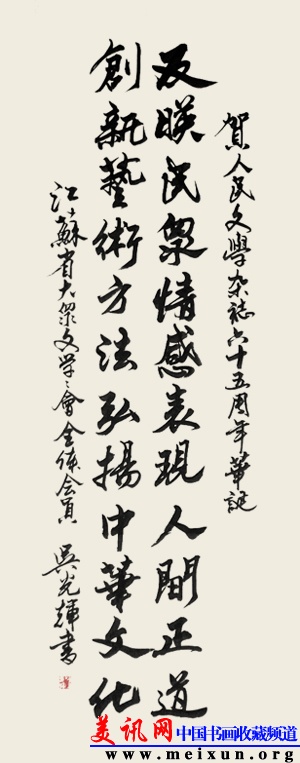 賀人民文學杂誌六十五周年華誕
反映民衆情感表現人間正道
創新藝術方法弘揚中華文化
江蘇省大衆文学、會全体会員
吳光輝書
美讯网 中国书画收藏频道
www.meixun.org